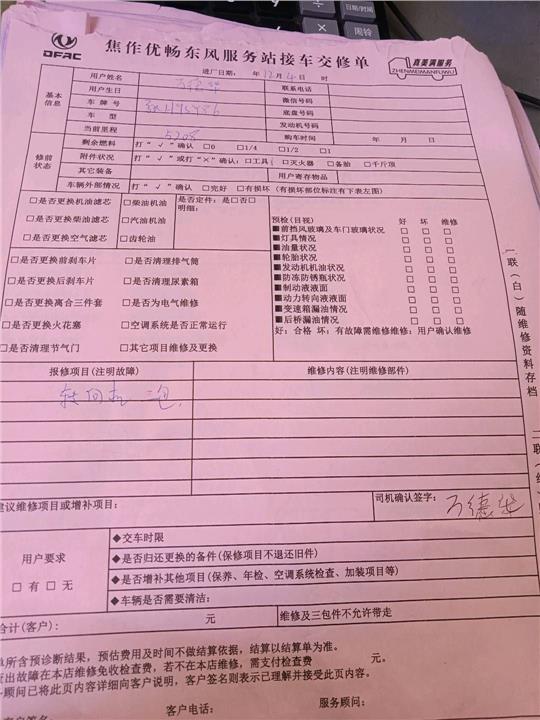 日期/时间
闹铃
DFAC
焦作优畅东风服务站接车交修单
真美满服务
ZHENMEIMANFUWU
进厂日期: 年12月4日 时
基本信息
用户姓名
联系电话
用户生日
微信号码
车牌号
底盘号码
车型
发动机号码
当前里程 5208
购车时间 年 月 日
修前状态
剩余燃料 打“√”确认 □0 □1/4 □1/2 □1
附件状况 打“√”或打“×”确认: □工具 □灭火器 □备胎 □千斤顶
其它装备
用户寄存物品
车辆外部情况 打“√”确认 □完好 □有损坏 (有损坏部位标注有下表左图)
□是否更换机油滤芯 □柴油机油 是否定件: 是□否□
明细:
□是否更换柴油滤芯 □汽油机油
□是否更换空气滤芯 □齿轮油
□是否更换前刹车片 □是否清理排气筒
□是否更换后刹车片 □是否清理尿素箱
□是否更换离合三件套 □是否为电气维修
□是否更换火花塞 □空调系统是否正常运行
□是否清理节气门 □其它项目维修及更换
预检(目视) 好 坏 维修
■前挡风玻璃及车门玻璃状况 □ □ □
■灯具情况 □ □ □
■油量状况 □ □ □
■轮胎状况 □ □ □
■发动机机油状况 □ □ □
■防冻防锈瓶状况 □ □ □
■制动液液面 □ □ □
■动力转向液液面 □ □ □
■变速箱漏油情况 □ □ □
■后桥漏油情况 □ □ □
好: 合格 坏: 有故障需维修维修: 用户确认维修
报修项目(注明故障) 维修内容(注明维修部件)
转向机 三包
建议维修项目或增补项目:
司机确认签字: 万德华
用户要求
□有 □无
◆交车时限
◆是否归还更换的备件(保修项目不退还旧件)
◆是否增补其他项目(保养、年检、空调系统检查、加装项目等)
◆车辆是否需要清洁:
合计(客户): 元
维修及三包件不允许带走
单所含预诊断结果,预估费用及时间不做结算依据,结算以结算单为准。
查出故障在本店维修免收检查费,若不在本店维修,需支付检查费 元。
务顾问已将此页内容详细向客户说明,客户签名则表示已理解并接受此页内容。
客户签名: 客户电话: 服务顾问:
一联(白)随维修资料存档
二联